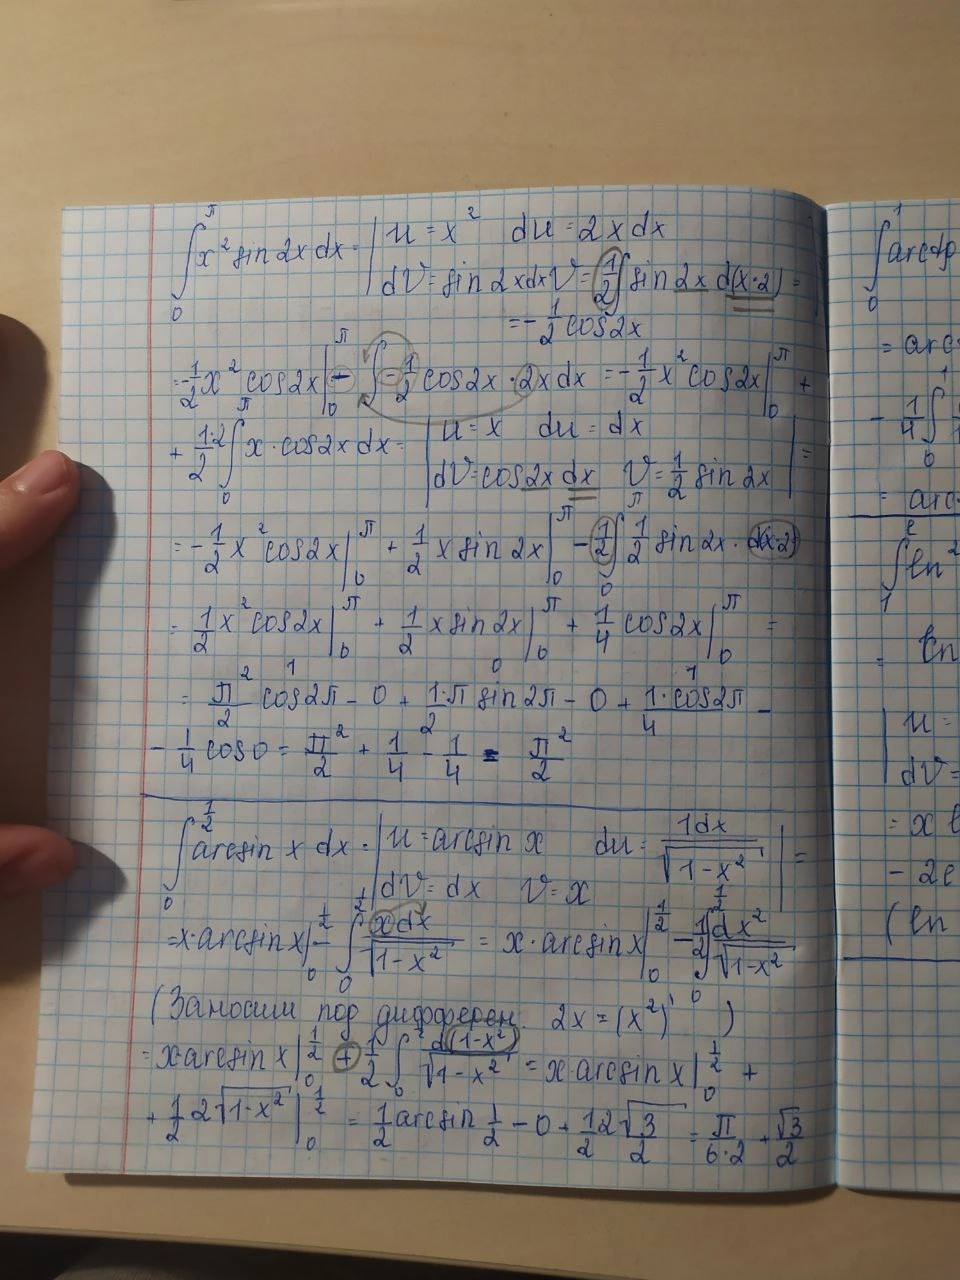 ∫₀^π x² sin 2x dx = | u = x² du = 2x dx
dV = sin 2x dx V = 1/2 ∫ sin 2x d(x·2) =
= -1/2 cos 2x
= -1/2 x² cos 2x |₀^π - ∫ -1/2 cos 2x · 2x dx = -1/2 x² cos 2x |₀^π +
+ 1·2/2 ∫₀^π x · cos 2x dx = | u = x du = dx
dV = cos 2x dx V = 1/2 sin 2x | =
= -1/2 x² cos 2x |₀^π + 1/2 x sin 2x |₀^π - 1/2 ∫₀^π 1/2 sin 2x · d(x·2)
= 1/2 x² cos 2x |₀^π + 1/2 x sin 2x |₀^π + 1/4 cos 2x |₀^π =
= π²/2 cos 2π - 0 + 1·π/2 sin 2π - 0 + 1·cos 2π/4 -
- 1/4 cos 0 = π²/2 + 1/4 - 1/4 = π²/2
∫₀^(1/2) arcsin x dx = | u = arcsin x du = 1dx/√(1-x²) | =
dV = dx V = x
= x·arcsin x |₀^(1/2) - ∫₀^(1/2) x dx/√(1-x²) = x·arcsin x |₀^(1/2) - 1/2 ∫₀^(1/2) dx²/√(1-x²)
(Заносим под дифферен. 2x = (x²)' )
= x·arcsin x |₀^(1/2) + 1/2 ∫₀^(1/2) d(1-x²)/√(1-x²) = x·arcsin x |₀^(1/2) +
+ 1/2 2√(1-x²) |₀^(1/2) = 1/2 arcsin 1/2 - 0 + 1/2 2√3/2 = π/6·2 + √3/2
∫₀^1
= arc
- 1/4 ∫₀^1
= arc
∫₁^e ln²
= ln
| u =
dV =
= x
- 2e
(ln